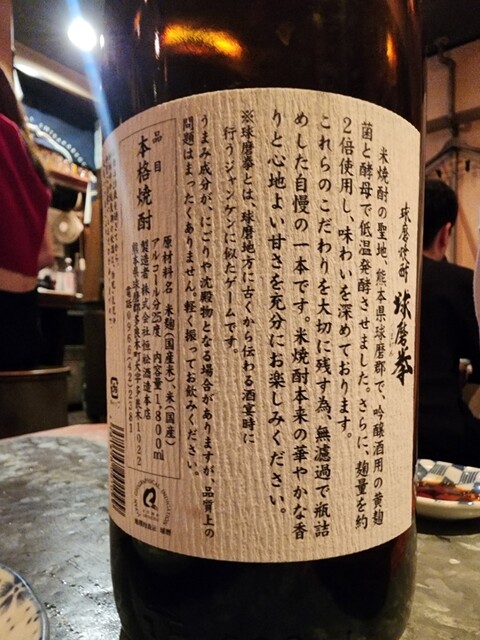 球磨焼酎 球磨拳
米焼酎の聖地、熊本県球磨郡で、吟醸酒用の黄麹
菌と酵母で低温発酵させました。さらに、麹量を約
2倍使用し、味わいを深めております。
これらのこだわりを大切に残す為、無濾過で瓶詰
めした自慢の一本です。米焼酎本来の華やかな香
りと心地よい甘さを充分にお楽しみください。
※球磨拳とは、球磨地方に古くから伝わる酒宴時に
行うジャンケンに似たゲームです。
うまみ成分が、にごりや沈殿物となる場合がありますが、品質上の
問題はまったくありません。軽く振ってお飲みください。
品目
本格焼酎
原材料名 米麹(国産米)、米(国産)
アルコール分25度 内容量1,800ml
製造者 株式会社恒松酒造本店
熊本県球磨郡多良木町大字多良木1022
電話0966(42)2381